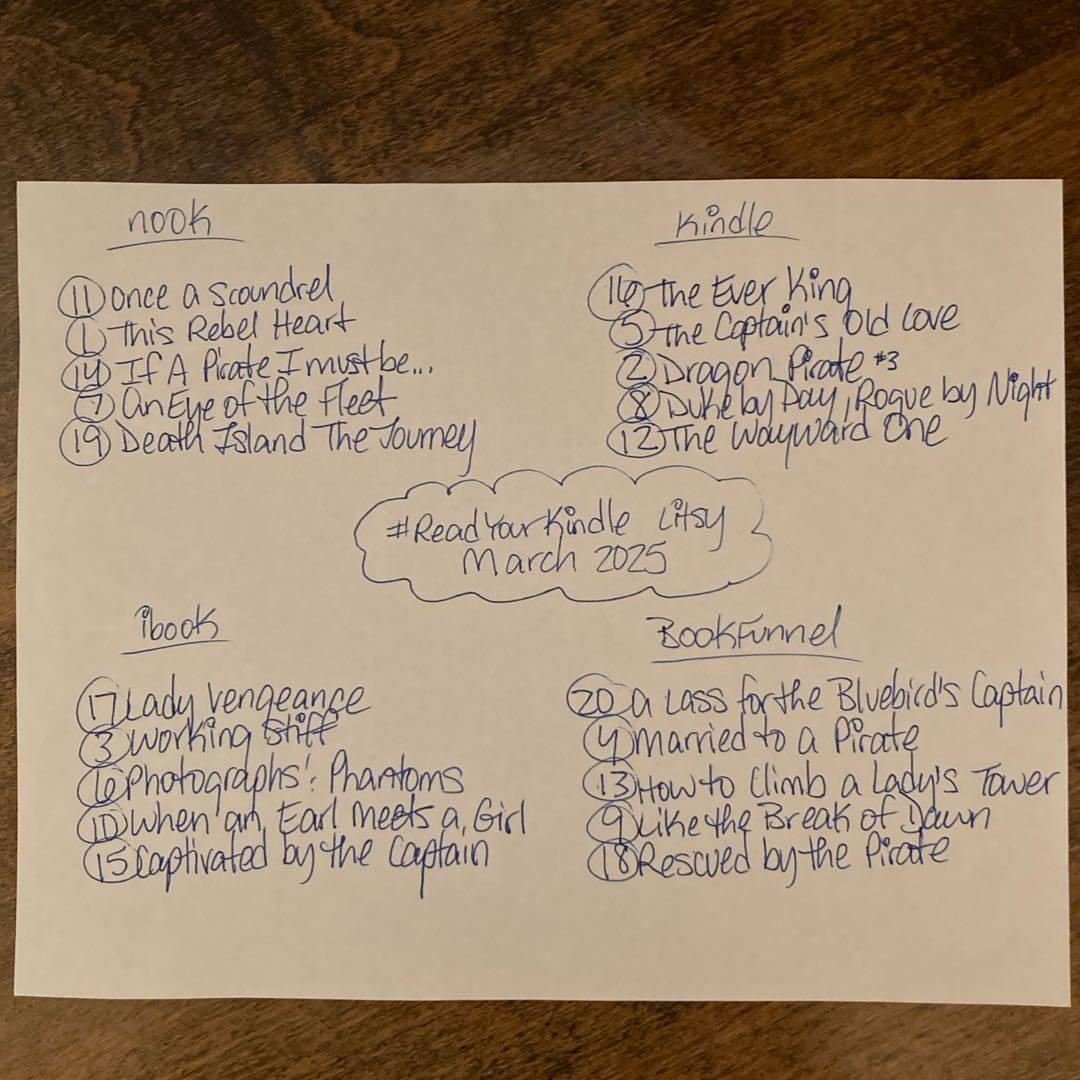 nook
11 Once a Scoundrel
1 This Rebel Heart
14 If A Pirate I must be...
7 An Eye of the Fleet
19 Death Island The Journey
Kindle
16 The Ever King
5 The Captain's Old Love
2 Dragon Pirate #3
8 Duke by Day, Rogue by Night
12 The Wayward One
#ReadYourKindle Litsy
March 2025
ibook
17 Lady Vengeance
3 Working Stiff
6 Photographs & Phantoms
10 When an Earl Meets a Girl
15 Captivated by the Captain
BookFunnel
20 A Lass for the Bluebird's Captain
4 Married to a Pirate
13 How to Climb a Lady's Tower
9 Like the Break of Dawn
18 Rescued by the Pirate